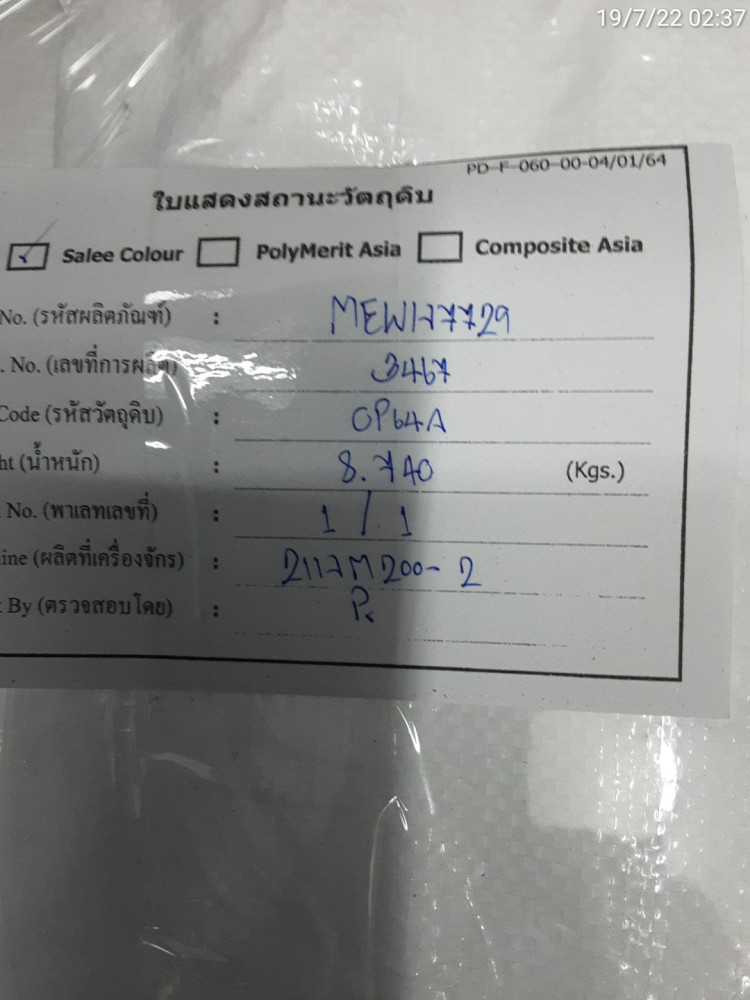 19/7/22 02:37
PD-F-060-00-04/01/64
ใบแสดงสถานะวัตถุดิบ
Salee Colour PolyMerit Asia Composite Asia
No. (รหัสผลิตภัณฑ์) :
. No. (เลขที่การผลิต) 3467
Code (รหัสวัตถุดิบ) : OP64A
ht (น้ำหนัก) : 8.740 (Kgs.)
No. (พาเลทเลขที่) : 1 / 1
ine (ผลิตที่เครื่องจักร) :
By (ตรวจสอบโดย) :